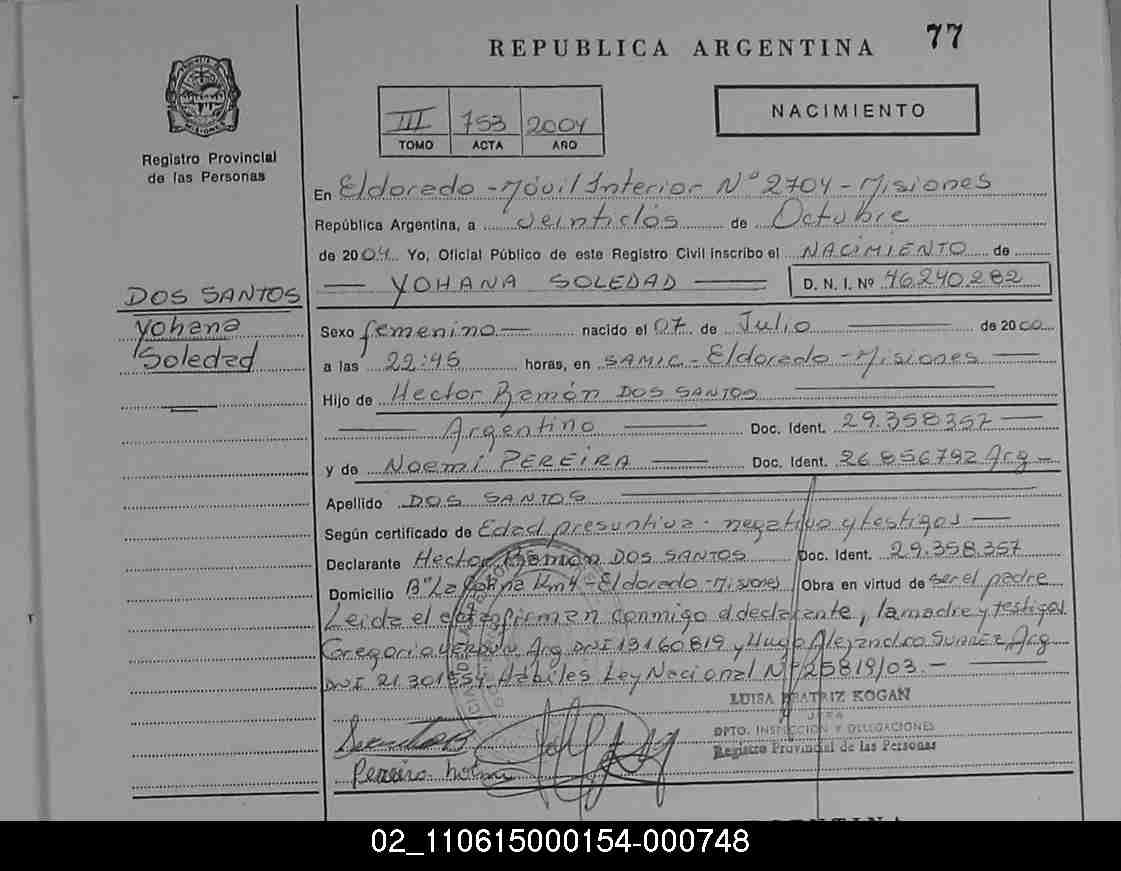 REPUBLICA ARGENTINA 77
III 753 2004
TOMO ACTA AÑO
NACIMIENTO
Registro Provincial
de las Personas
En Eldorado - Móvil Interior Nº 2704 - Misiones
República Argentina, a veintidós de Octubre
de 2004 Yo, Oficial Público de este Registro Civil inscribo el NACIMIENTO de
YOHANA SOLEDAD D. N. I. Nº 46.240.282
DOS SANTOS
Yohana
Soledad
Sexo femenino nacido el 07 de Julio de 2000
a las 22:45 horas, en SAMIC - Eldorado - Misiones
Hijo de Hector Ramón DOS SANTOS
Argentino Doc. Ident. 29.358357
y de Noemi PEREIRA Doc. Ident. 26.856792 Arg
Apellido DOS SANTOS
Según certificado de Edad presuntiva - negativo y testigos
Declarante Hector Ramón DOS SANTOS Doc. Ident. 29.358.357
Domicilio Bº La Km 4 - Eldorado - Misiones Obra en virtud de ser el padre
Leida el acta firman conmigo el declarante, la madre y testigos
Gregorio Arg DNI 13160819 y Hugo Alejandro SUAREZ Arg
DNI 21.301554 Hábiles Ley Nacional Nº 25819/03.-
LUISA BEATRIZ KOGAN
JEFA
DPTO. INSPECCION Y DELEGACIONES
Registro Provincial de las Personas
02_110615000154-000748